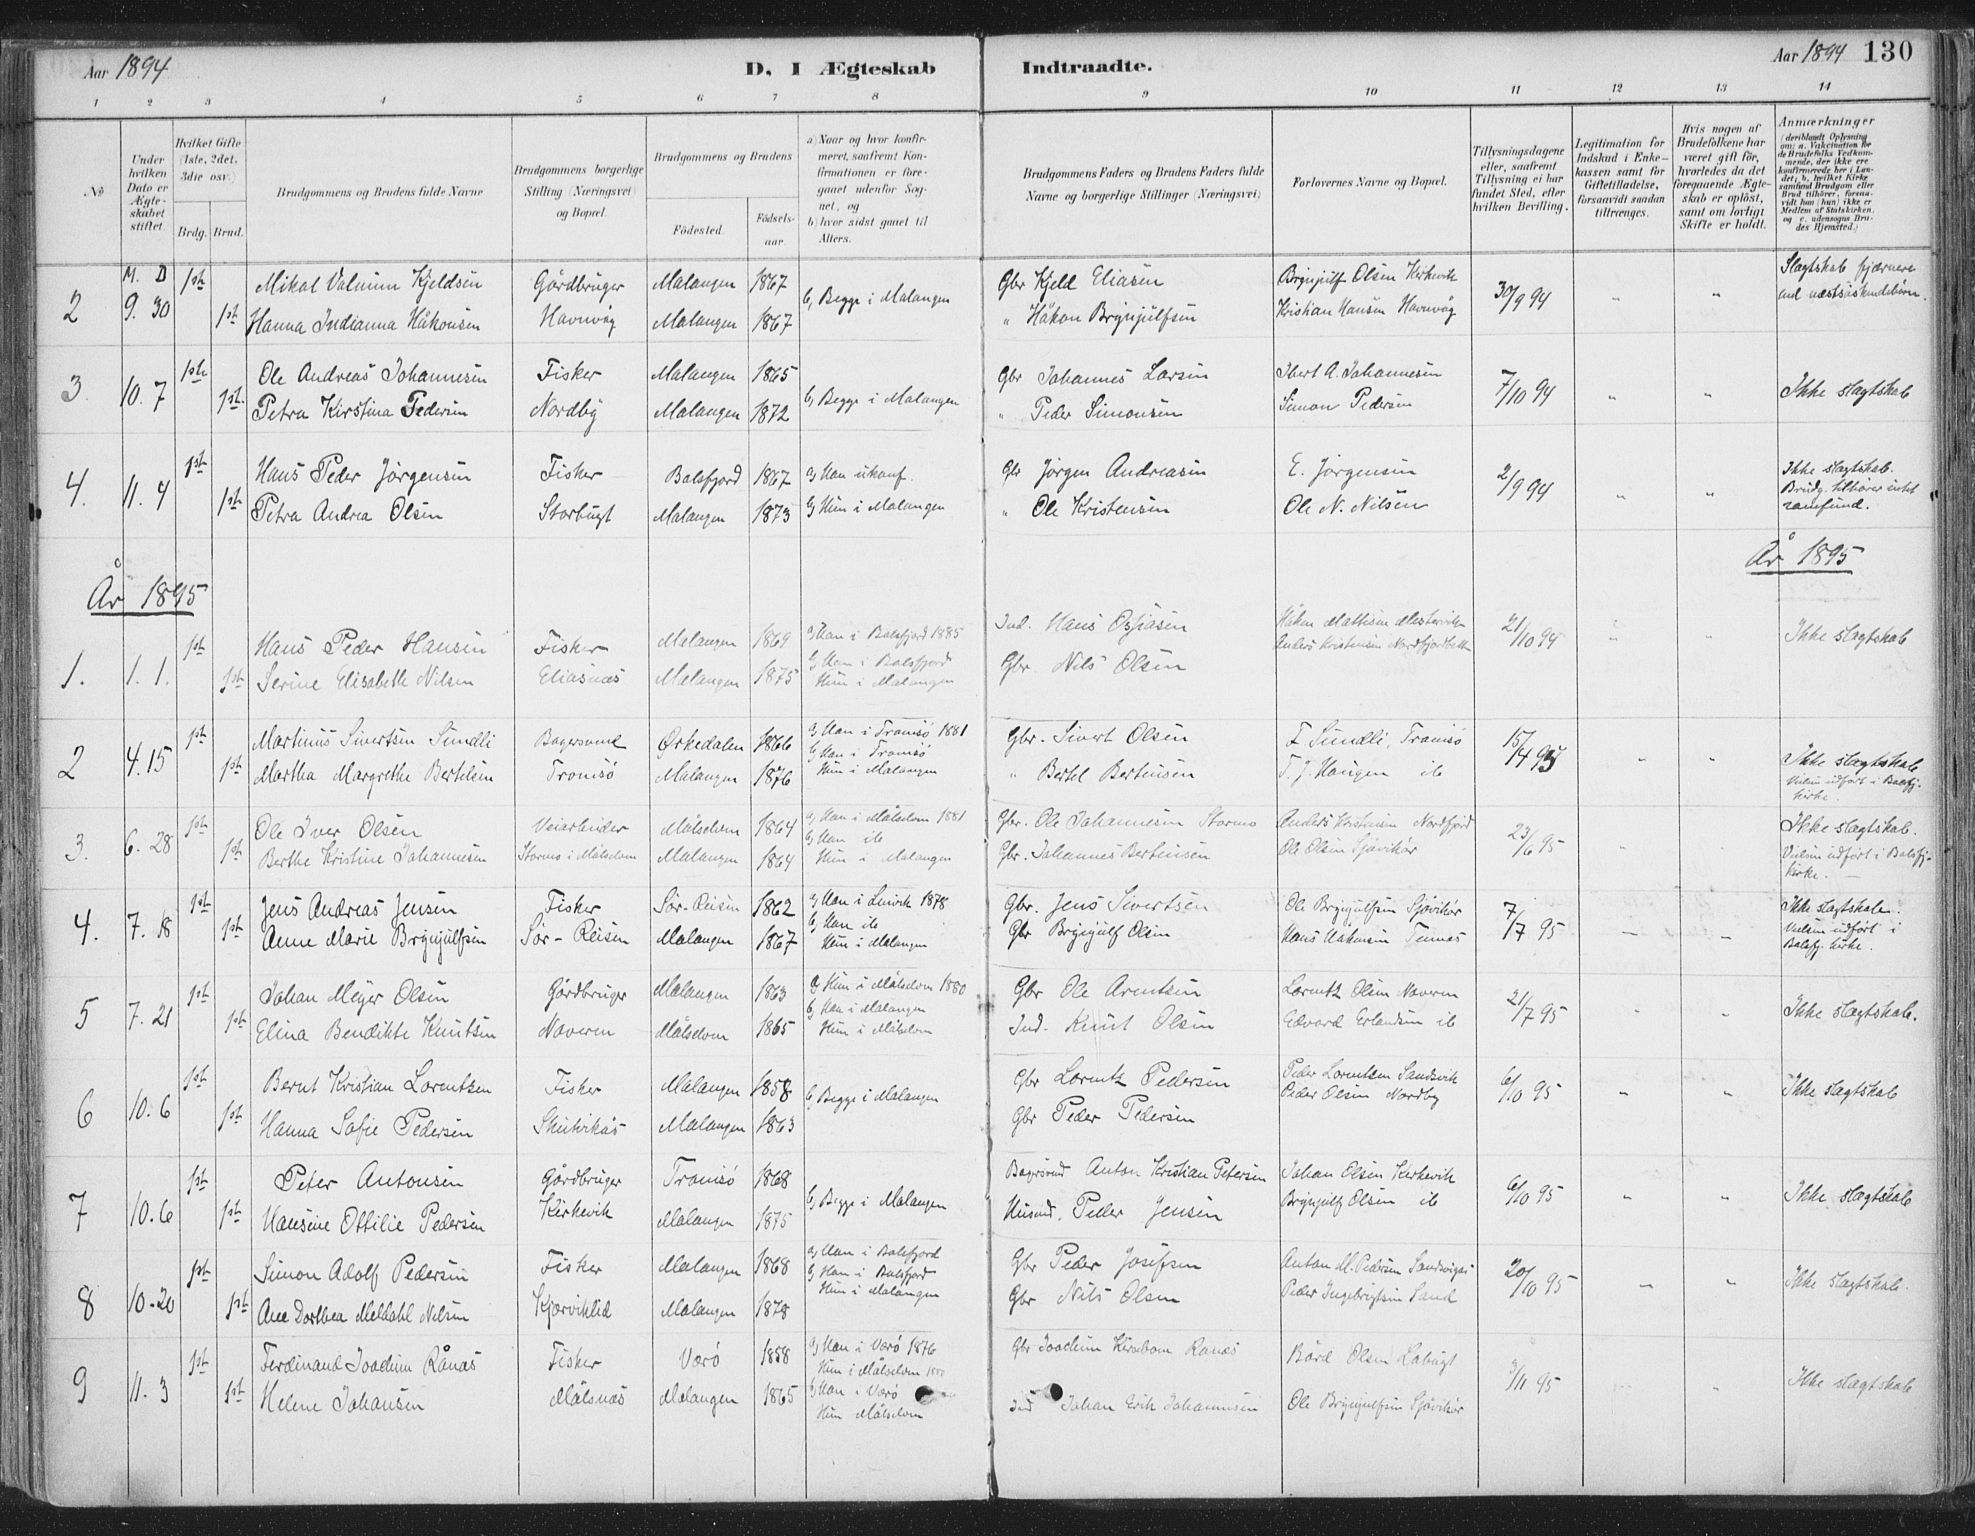 Aar 1894
D, I Ægteskab Indtraadte.
Aar 1894 130
1 2 3 4 5 6 7 8 9 10 11 12 13 14
No
Under hvilken Dato er Ægteskabet stiftet.
Hvilket Gifte (1ste, 2det, 3die osv.)
Brdg. Brud.
Brudgommens og Brudens fulde Navne
Brudgommens borgerlige Stilling (Næringsvei) og Bopæl.
Brudgommens og Brudens
Födested. Födselsaar.
a) Naar og hvor konfirmeret, saafremt Konfirmationen er foregaaet udenfor Sognet, og
b) hvor sidst gaaet til Alters.
Brudgommens Faders og Brudens Faders fulde Navne og borgerlige Stillinger (Næringsvei)
Forlovernes Navne og Bopæl.
Tillysningsdagene eller, saafremt Tillysning ei har fundet Sted, efter hvilken Bevilling.
Legitimation for Indskud i Enkekassen samt for Giftetilladelse, forsaavidt saadan tiltrænges.
Hvis nogen af Brudefolkene har været gift för, hvorledes da det foregaaende Ægteskab er oplöst, samt om lovligt Skifte er holdt.
Anmærkninger (deriblandt Oplysning om: a. Vaccination for de Brudefolks Vedkommende, der ikke ere konfirmerede her i Landet; b. hvilket Kirkesamfund Brudgom eller Brud tilhörer, forsaavidt han (hun) ikke er Medlem af Statskirken, og c. udensogns Brudes Hjemsted.)
M. D
2 9. 30 1ste Mikal Valnum Kjeldsen Gårdbruger Malangen 1867 b) Begge i Malangen Gbr Kjeld Eliasen Brynjulf Olsen Kirkevik 30/9 94 " " Slægtskab fjærnere
1st Hanna Indianna Håkonsen Havnvåg Malangen 1867 " Håkon Brynjulfsen Kristian Hansen Havnvåg end næstsøskendebørn.
3. 10. 7 1ste Ole Andreas Johannesen Fisker Malangen 1865 b) Begge i Malangen Gbr Johannes Larsen Ibert A. Johannesen 7/10 94 " " Ikke slægtskab
1st. Petra Kirstina Pedersen Nordby Malangen 1872 " Peder Simonsen Simon Pedersen
4. 11. 4 1st Hans Peder Jørgensen Fisker Balsfjord 1867 a) Han ukonf. Gbr Jørgen Andreasen E. Jørgensen 2/9 94 " " Ikke slægtskab.
1st Petra Andrea Olsen Storbugt Malangen 1873 b) Hun i Malangen " Ole Kristensen Ole N. Nilsen Brudg. tilhører intet samfund.
År 1895 År 1895
1. 1. 1. 1st Hans Peder Hansen Fisker Malangen 1869 a) Han i Balsfjord 1885 Ind. Hans Osjasen Håkon Mattisen Mestervik 21/10 94 " " Ikke slægtskab
1st Serine Elisabeth Nilsen Eliasnæs Malangen 1875 b) Han i Balsfjord Gbr. Nils Olsen Anders Kristensen
Hun i Malangen
2 4. 15 1st Martinus Sivertsen Sundli Bagersvend Ørkedalen 1866 a) Han i Tromsö 1881 Gbr. Sivert Olsen E Sundli, Tromsö 15/4 95 " " Ikke slægtskab
1st Martha Margrethe Bertelsen Tromsö Malangen 1876 b) Han i Tromsö " Bertel Bertensen T. J. Haugen ib Vielsen udført i Balsfj. kirke.
Hun i Malangen
3. 6. 28 1st Ole Iver Olsen Veiarbeider Målselven 1864 a) Han i Målselven 1881 Gbr. Ole Johannesen Stormo Anders Kristensen Nordfjord 23/6 95 " Ikke slægtskab.
1st Berthe Kristine Johannesen Stormo i Målselven Malangen 1864 b) Han ib Gbr. Johannes Bertensen Ole Olsen Sjøvikør Vielsen udført i Balsfj. kirke.
Hun i Malangen
4. 7. 18 1st Jens Andreas Jensen Fisker Sør-Reisen 1862 a) Han i Lenvik 1878 Gbr. Jens Sivertsen Ole Brynjulfsen Sjøvikør 7/7 95 Ikke slægtskab.
1st Anne Marie Brynjulfsen Sør-Reisen Malangen 1867 b) Han ib Gbr Brynjulf Olsen Hans Hakonsen Vielsen udført i Balsfj. kirke.
Hun i Malangen
5 7. 21 1st Johan Meyer Olsen Gårdbruger Malangen 1863 a) Hun i Målselven 1880 Gbr Ole Arentsen Lorentz Olsen Naveren 21/7 95 " " Ikke slægtskab.
1st Elina Bendikte Knutsen Naveren Målselven 1865 b) Han i Malangen Ind. Knut Olsen Edvard Erlandsen ib
Hun i Målselven
6 10. 6 1st Bernt Kristian Lorentzen Fisker Malangen 1858 b) Begge i Malangen Gbr Lorentz Pedersen Peder Lorentzen Sandsvik 6/10 95 " " Ikke slægtskab
1st Hanna Sofie Pedersen Skutvikås Malangen 1863 Gbr Peder Pedersen Peder Olsen Nordby
7 10. 6 1st Peter Antonsen Gårdbruger Tromsö 1868 b) Begge i Malangen Anton Kristian Petersen Johan Olsen Kirkevik 6/10 95 " " Ikke slægtskab
1st Hansine Ottilie Pedersen Kirkevik Malangen 1875 Husmd. Peder Jensen Brynjulf Olsen ib
8 10. 20 1st Simon Adolf Pedersen Fisker Malangen 1868 a) Han i Balsfjord Gbr Peder Josefsen Anton M. Pedersen Sandsvigås 20/10 95 " Ikke slægtskab.
1st Ane Dorthea Meldahl Nilsen Kjørviklid Malangen 1878 b) Han i Balsfjord Gbr Nils Olsen Peder Ingebrigtsen Sand
Hun i Malangen
9 11. 3 1st Ferdinand Joachim Rånæs Fisker Værö 1858 a) Han i Værö 1876 Gbr Joachim Rånæs Bård Olsen Labugt 3/11 95 " Ikke slægtskab
1st Helene Johansen Målsnæs Malangen 1865 Hun i Målselven Ind Johan Erik Johannesen Ole Brynjulfsen Sjøvikør
b) Han i Værö
Hun Målselven